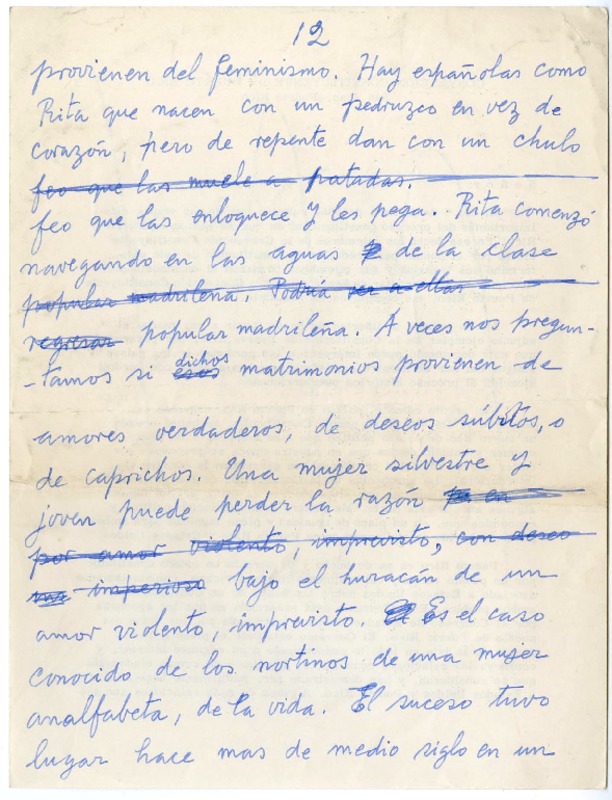 12
provienen del feminismo. Hay españolas como
Rita que nacen con un pedruzco en vez de
corazón, pero de repente dan con un chulo
feo que las muele a patadas.
feo que las enloquece y les pega. Rita comenzó
navegando en las aguas de la clase
popular madrileña. Podría ser a ellas
regresar popular madrileña. A veces nos pregun-
-tamos si esos dichos matrimonios provienen de
amores verdaderos, de deseos súbitos, o
de caprichos. Una mujer silvestre y
joven puede perder la razón en
por amor violento, imprevisto, con deseo
imperioso bajo el huracán de un
amor violento, imprevisto. Es el caso
conocido de los nortinos de una mujer
analfabeta, de la vida. El suceso tuvo
lugar hace mas de medio siglo en un